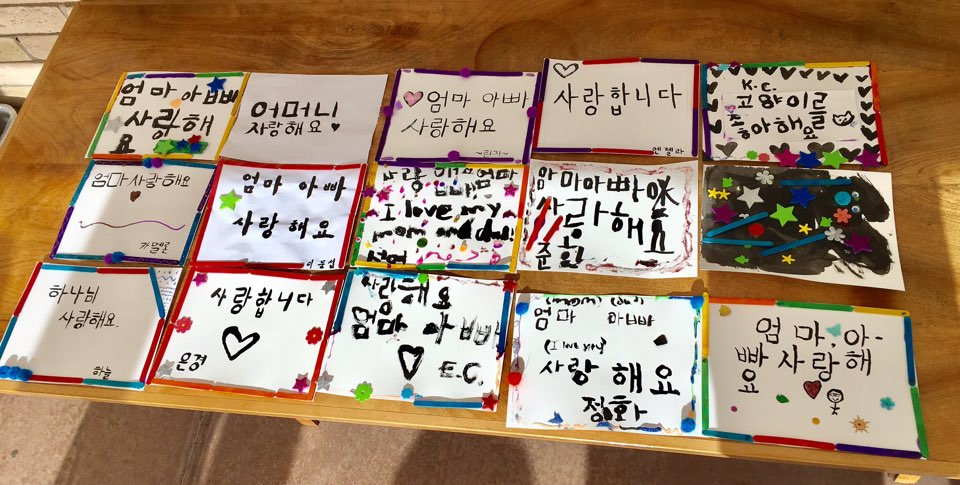 엄마 아빠
사랑해
요
어머니
사랑해요
엄마 아빠
사랑해요
~리지~
사랑합니다
멘젤라
K.C.
고양이를
좋아해요
엄마 사랑해요
엄마 아빠
사랑해요
엄마
I love my
mom and dad
엄마 아빠
사랑해요
준회
하나님
사랑해요.
하늘
사랑합니다
은경
사랑해요
엄마 아빠
E.C.
(mom) (dad)
엄마 아빠
(I love you)
사랑해요
정화
엄마, 아-
빠 사랑해
요